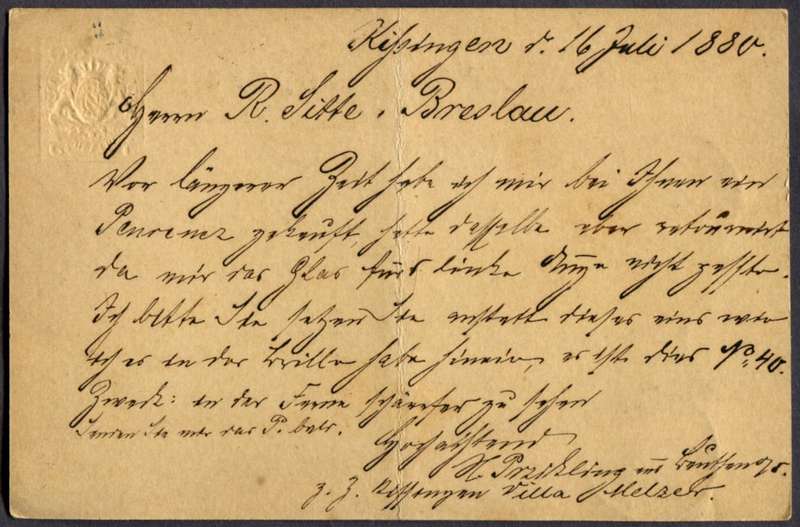 Kissingen d. 16 Juli 1880.
Herrn R. Sitte, Breslau.
Vor längerer Zeit habe ich mir bei Ihnen ein
gekauft, hatte dasselbe aber retournirt
da mir das Glas fürs linke Auge nicht passte.
Ich bitte Sie setzen Sie anstatt dieses eins wie
ich es in der Brille habe hinein, es ist dies No. 40.
Zweck: in der Ferne schärfer zu sehen
Senden Sie mir das P. bald.
Hochachtend
aus Beuthen o/s.
z. Z. Kissingen Villa Melzer.